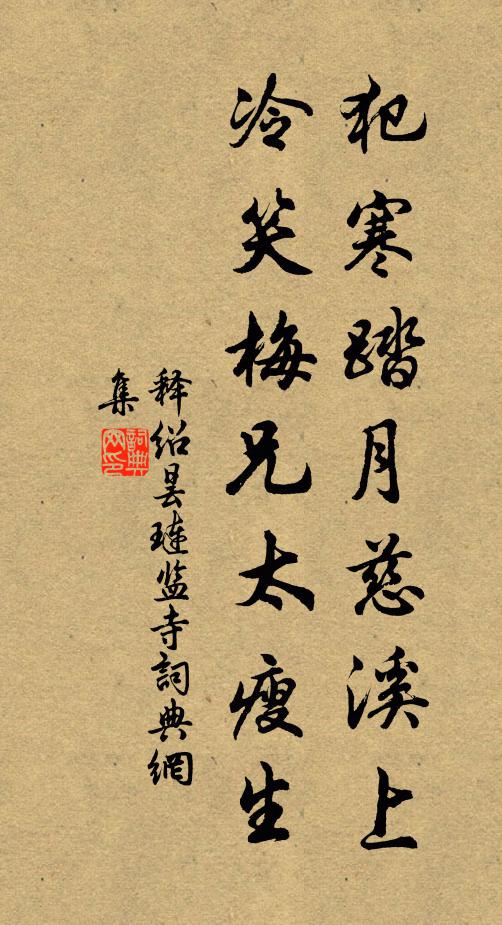 犯寒踏月慈溪上
冷笑梅兄太瘦生
释绍昙琏监寺詞典網
集
詞典網印